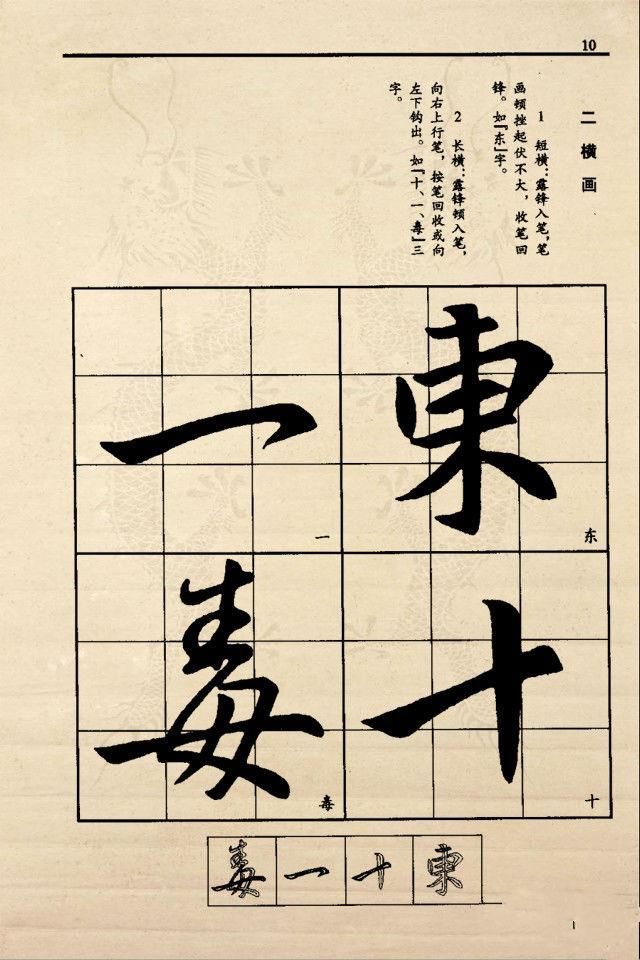 10
二 横 画
1 短横：露锋入笔，笔
画顿挫起伏不大，收笔回
锋。如『东』字。
2 长横：露锋顿入笔，
向右上行笔，按笔回收或向
左下钩出。如『十、一、毒』三
字。
東
东
十
十
一
一
毒
毒
東
十
一
毒
1